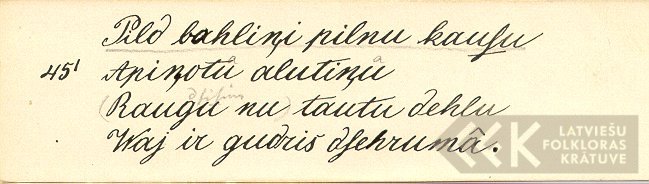 Pild bahliņi pilnu kauſu
45¹ Apiņotu alutiņu
Raugu nu tautu dehlu
Waj ir gudris dſehrumâ.
LATVIEŠU
FOLKLORAS
KRĀTUVE